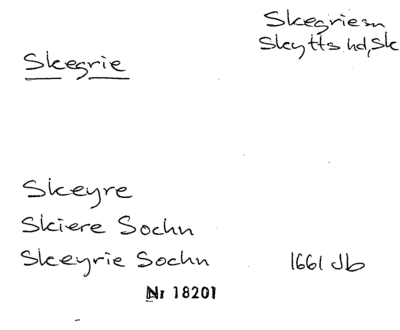 Skegrie sn
Skytts hd, Sk
Skegrie
Skeyre
Skiere Sochn
Skeyrie Sochn 1661 Jb
Nr 18201